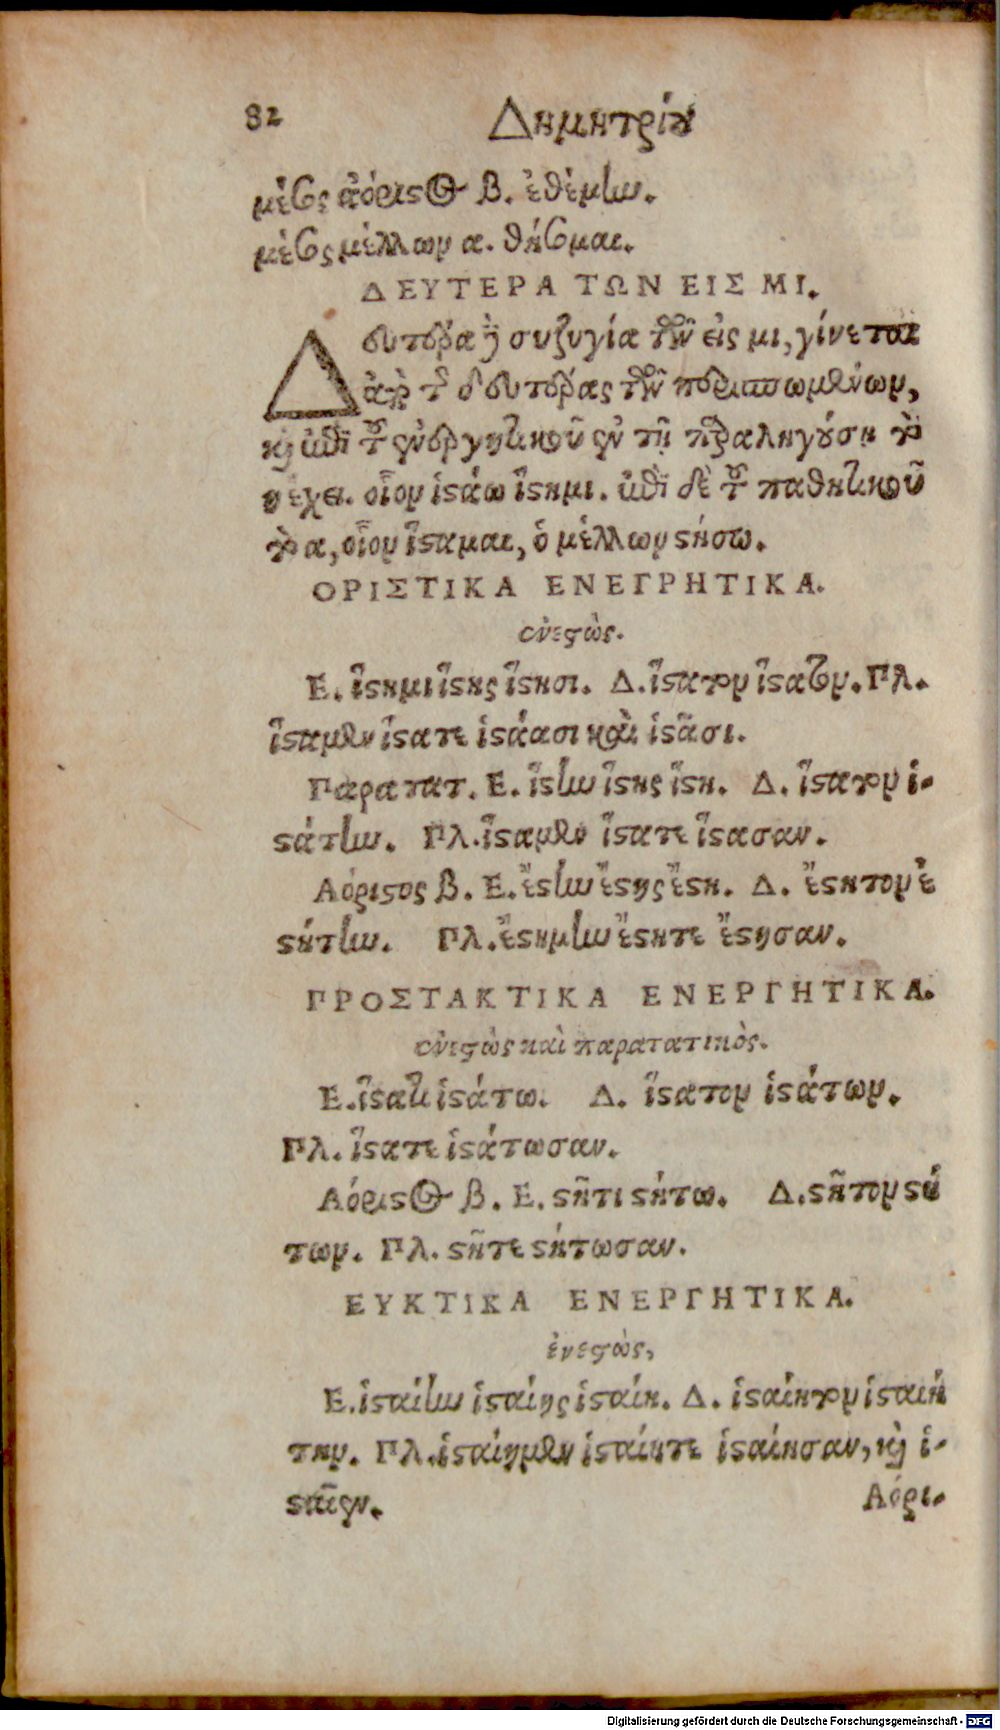 82 Δημητρίου
μέσος ἀόριστος β. ἐθέμην.
μέσος μέλλων α. θήσομαι.
ΔΕΥΤΕΡΑ ΤΩΝ ΕΙΣ ΜΙ.
Δευτέρα ἡ συζυγία τῶν εἰς μι, γίνεται
ἀπὸ τῆς δευτέρας τῶν περισπωμένων,
καὶ ἐπὶ τοῦ ἐνεργητικοῦ ἐν τῇ παραληγούσῃ τὸ
η ἔχει. οἷον ἱστάω ἵστημι. ἐπὶ δὲ τοῦ παθητικοῦ
τὸ α, οἷον ἵσταμαι, ὁ μέλλων στήσω.
ΟΡΙΣΤΙΚΑ ΕΝΕΓΡΗΤΙΚΑ.
ἐνεστώς.
Ε. ἵστημι ἵστης ἵστησι. Δ. ἵστατον ἵστατον. Πλ.
ἵσταμεν ἵστατε ἱστάασι καὶ ἱστᾶσι.
Παρατατ. Ε. ἵστην ἵστης ἵστη. Δ. ἵστατον ἱ-
στάτην. Πλ. ἵσταμεν ἵστατε ἵστασαν.
Αόριστος β. Ε. ἔστην ἔστης ἔστη. Δ. ἔστητον ἐ
στήτην. Πλ. ἔστημην ἔστητε ἔστησαν.
ΠΡΟΣΤΑΚΤΙΚΑ ΕΝΕΡΓΗΤΙΚΑ.
ἐνεστὼς καὶ παρατατικὸς.
Ε. ἵσταθι ἱστάτω. Δ. ἵστατον ἱστάτων.
Πλ. ἵστατε ἱστάτωσαν.
Αόριστος β. Ε. στῆτι στήτω. Δ. στῆτον στή
των. Πλ. στῆτε στήτωσαν.
ΕΥΚΤΙΚΑ ΕΝΕΡΓΗΤΙΚΑ.
ἐνεστὼς,
Ε. ἱσταίην ἱσταίης ἱσταίη. Δ. ἱσταίητον ἱσταιή
την. Πλ. ἱσταίημεν ἱσταίητε ἱσταίησαν, καὶ ἱ-
σταῖεν. Αόρι-
Digitalisierung gefördert durch die Deutsche Forschungsgemeinschaft - DFG